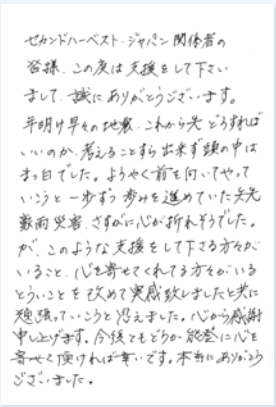 セカンドハーベスト・ジャパン関係者の
皆様、この度は支援をして下さい
まして、誠にありがとうございます。
年明け早々の地震、これから先どうすれば
いいのか、考えることすら出来ず頭の中は
まっ白でした。ようやく前を向いてやって
いこうと一歩ずつ歩みを進めていた矢先
豪雨災害、さすがに心が折れそうでした。
が、このような支援をして下さる方々が
いること、心を寄せてくれてる方々がいる
とういことを改めて実感致しましたと共に
勉強っていこうと思えました。心から感謝
申し上げます。今後ともどうか能登に心を
寄せて頂ければ幸いです。本当にありがとう
ございました。